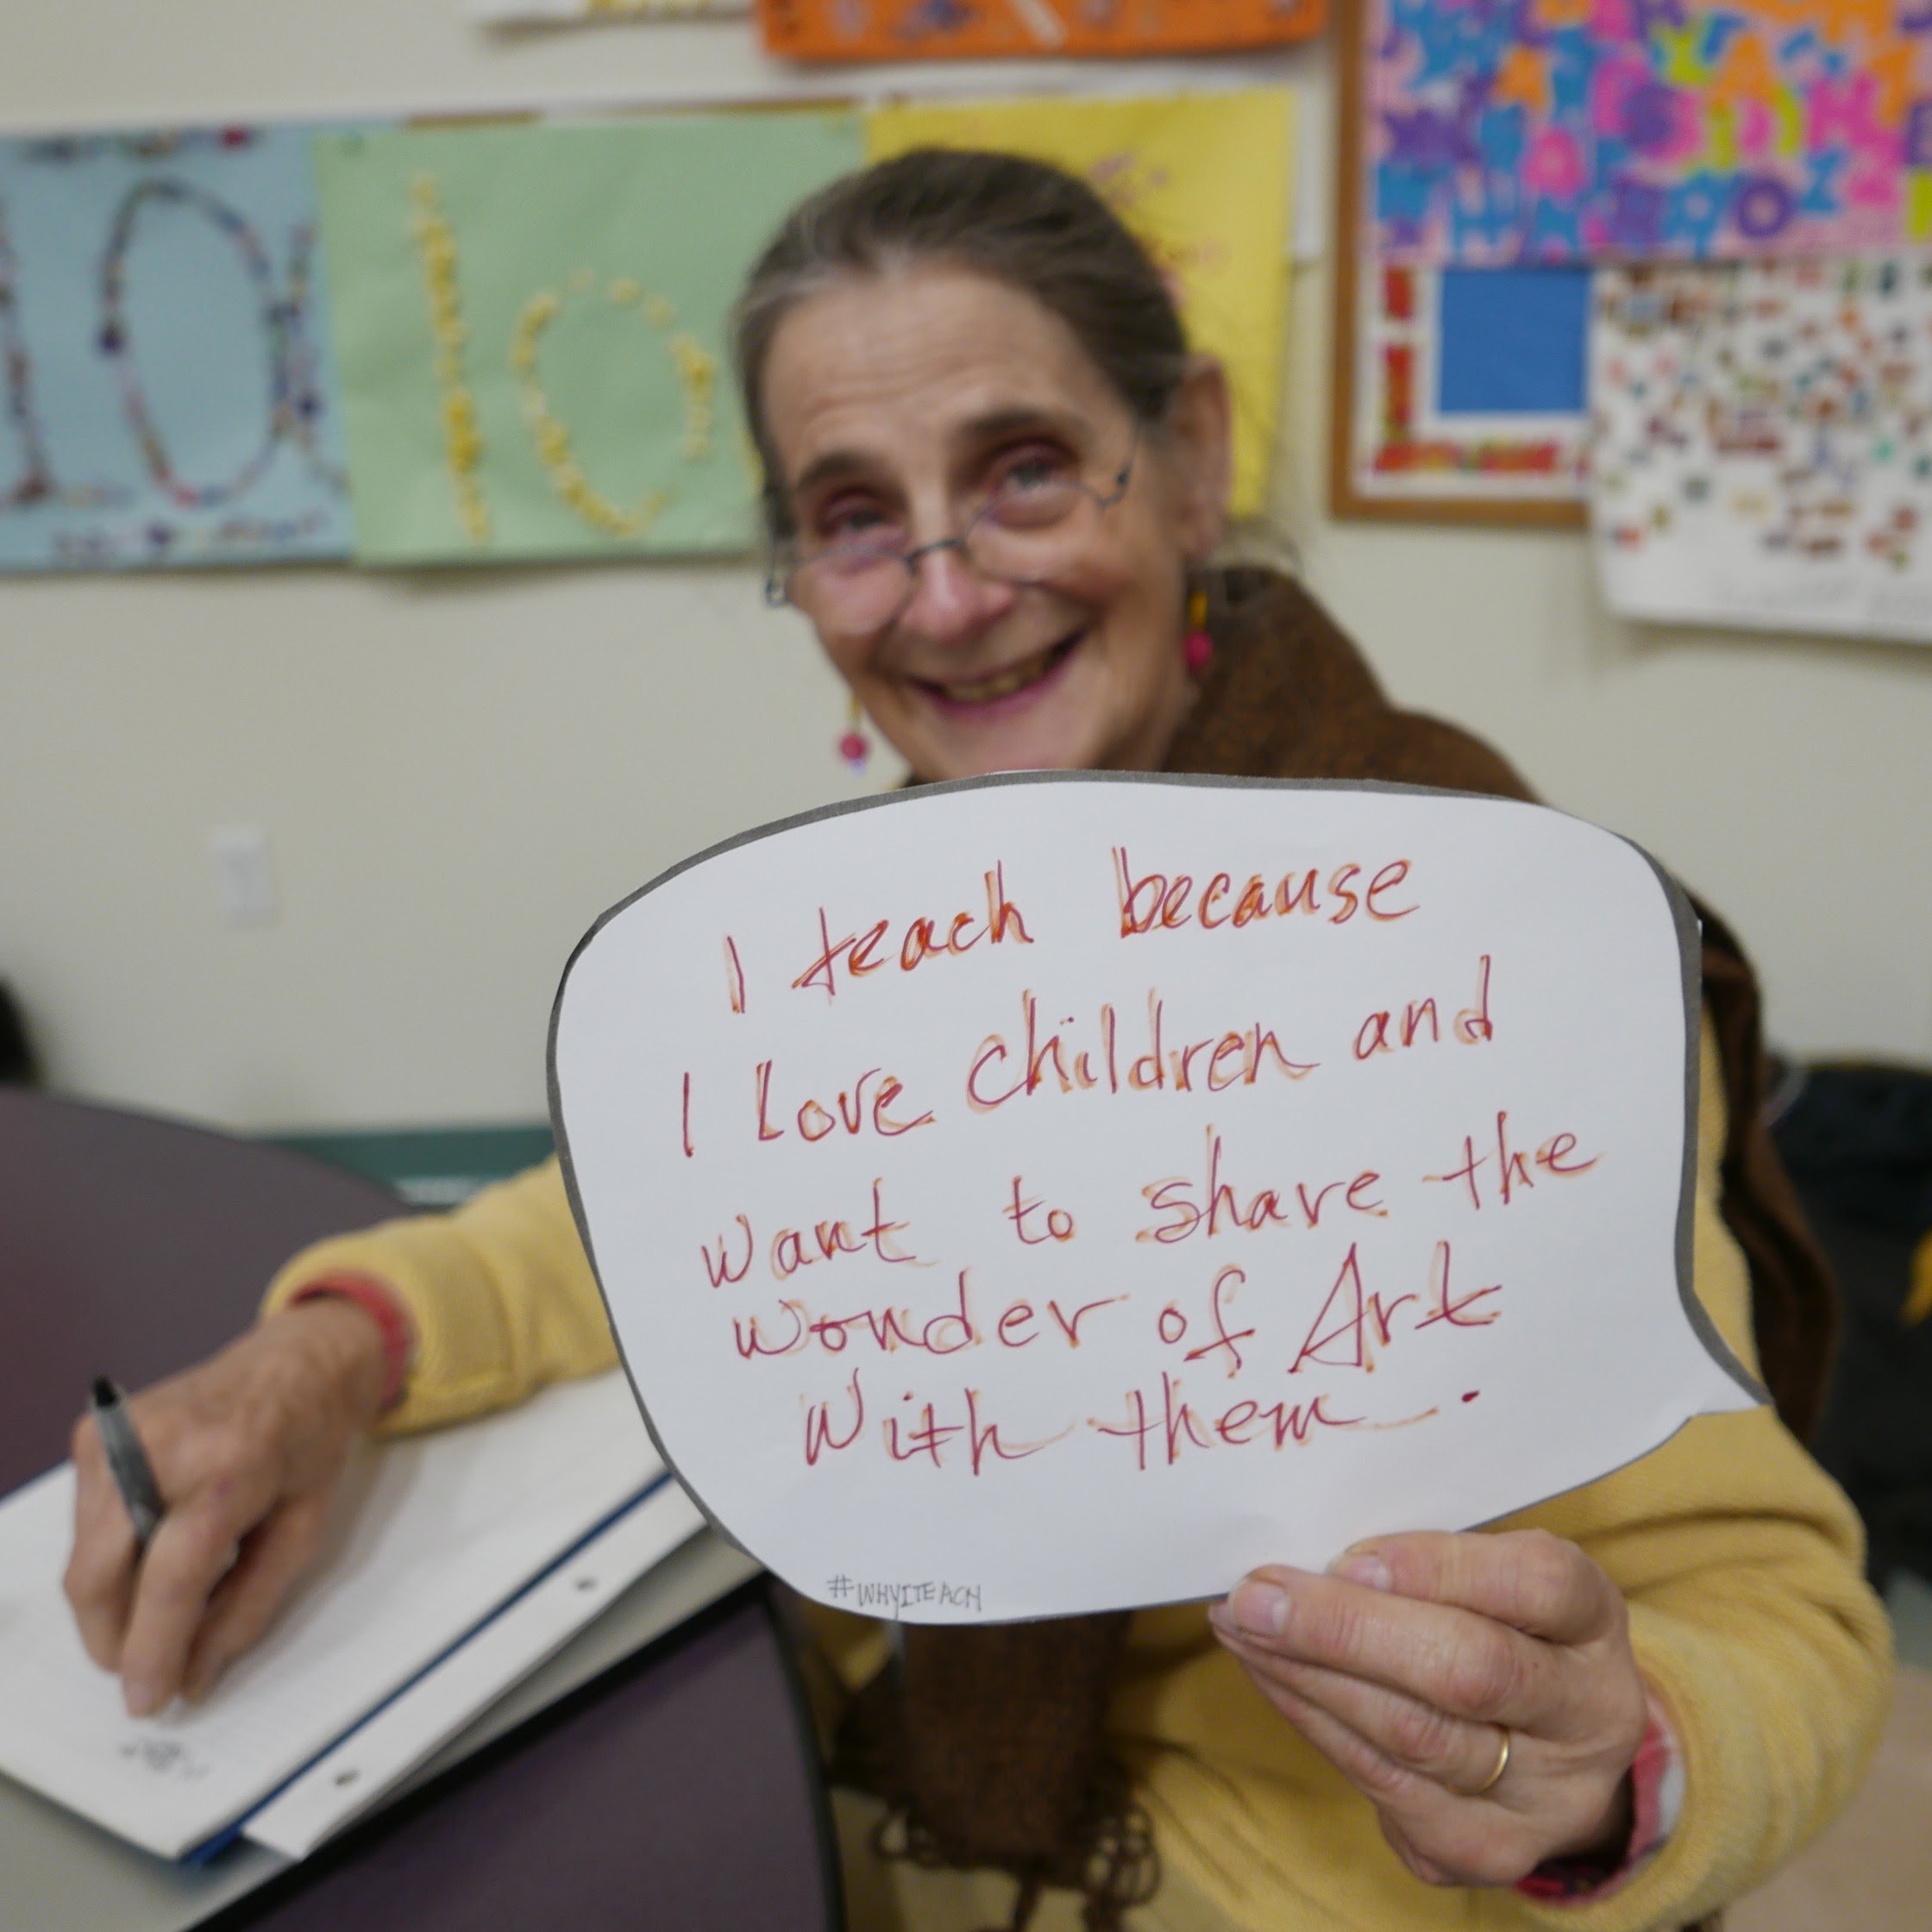 100
10
I teach because
I love children and
want to share the
wonder of Art
With them.
#WHYITEACH